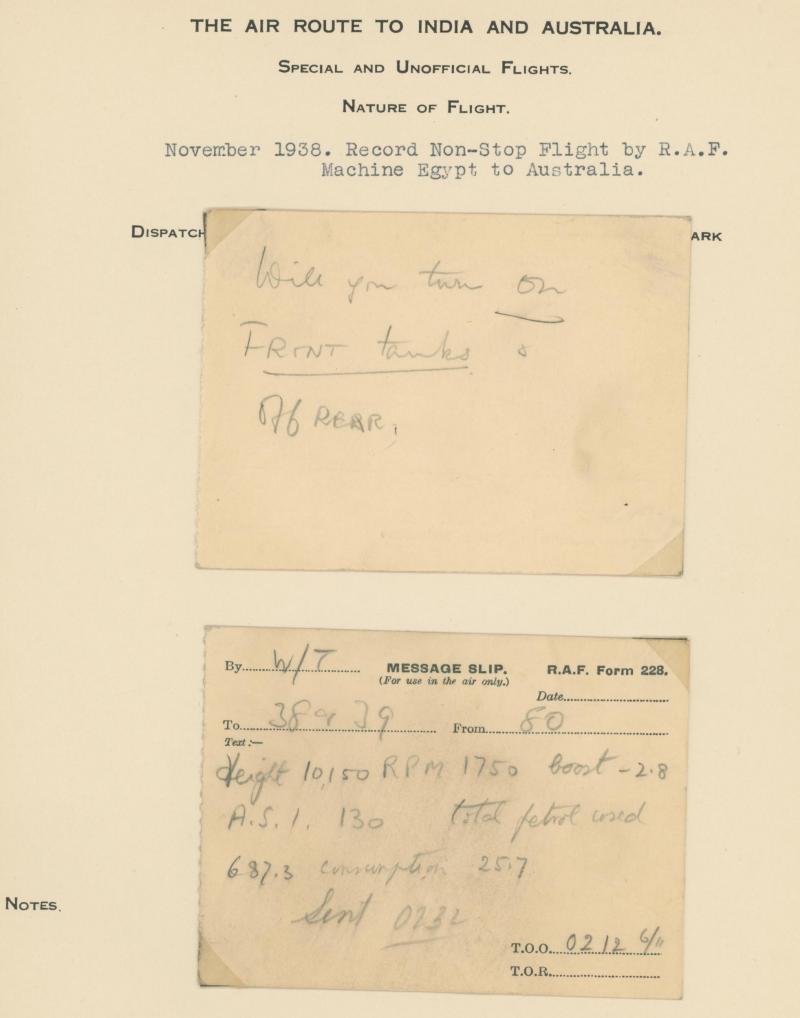 THE AIR ROUTE TO INDIA AND AUSTRALIA.
SPECIAL AND UNOFFICIAL FLIGHTS.
NATURE OF FLIGHT.
November 1938. Record Non-Stop Flight by R.A.F.
Machine Egypt to Australia.
DISPATCH ARK
Will you turn on
FRONT tanks &
Off REAR,
By W/T MESSAGE SLIP. R.A.F. Form 228.
(For use in the air only.)
Date
To 38 & 39 From 80
Text :—
Height 10,150 RPM 1750 boost -2.8
A.S.I. 130 total petrol used
687.3 consumption 25.7
Sent 0232
T.O.O. 0212 6/11
T.O.R.
NOTES.